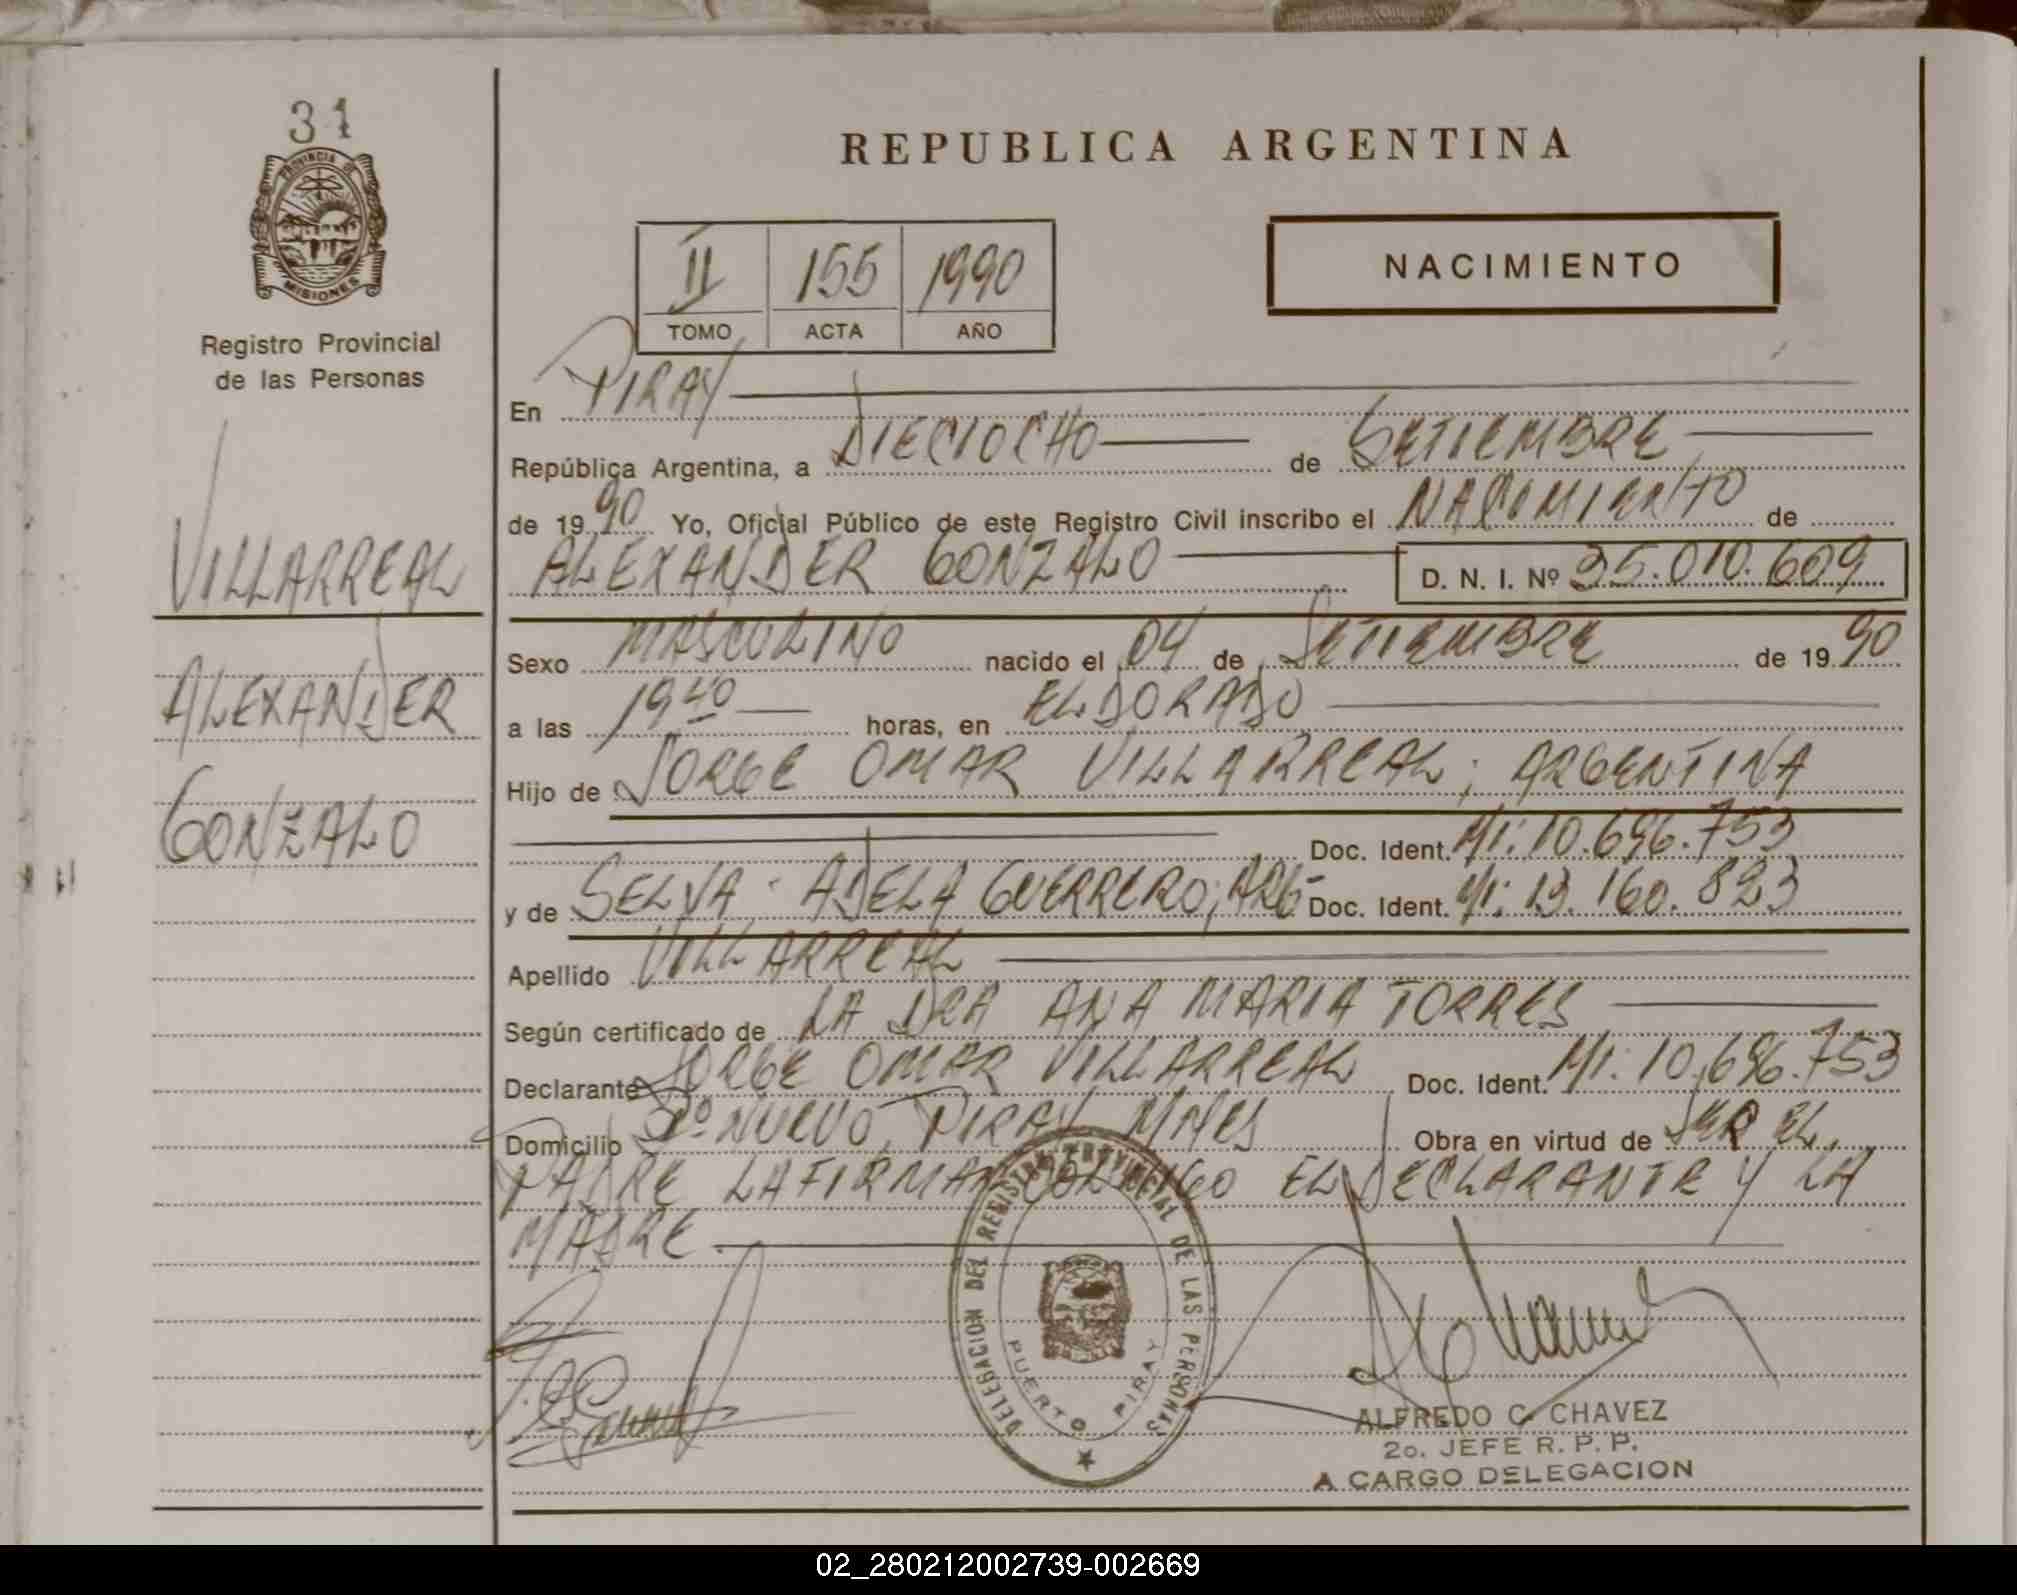 31
PROVINCIA DE
MISIONES
Registro Provincial
de las Personas
VILLARREAL
ALEXANDER
GONZALO
REPUBLICA ARGENTINA
II 155 1990
TOMO ACTA AÑO
NACIMIENTO
En PIRAY
República Argentina, a DIECIOCHO de SETIEMBRE
de 1990 Yo, Oficial Público de este Registro Civil inscribo el NACIMIENTO de
ALEXANDER GONZALO D. N. I. Nº 35.010.609
Sexo MASCULINO nacido el 04 de SETIEMBRE de 1990
a las 19 40 horas, en ELDORADO
Hijo de JORGE OMAR VILLARREAL; ARGENTINA
Doc. Ident. MI: 10.696.753
y de SELVA ADELA GUERRERO; ARG Doc. Ident. MI: 13.160.823
Apellido VILLARREAL
Según certificado de LA DRA ANA MARIA TORRES
Declarante JORGE OMAR VILLARREAL Doc. Ident. MI: 10.696.753
Domicilio Pº NUEVO, PIRAY MNES Obra en virtud de SER EL
PADRE LA FIRMAN CONMIGO EL DECLARANTE Y LA
MADRE
DELEGACION DEL REGISTRO PROVINCIAL DE LAS PERSONAS
PUERTO PIRAY
ALFREDO C. CHAVEZ
2o. JEFE R. P. P.
A CARGO DELEGACION
02_280212002739-002669